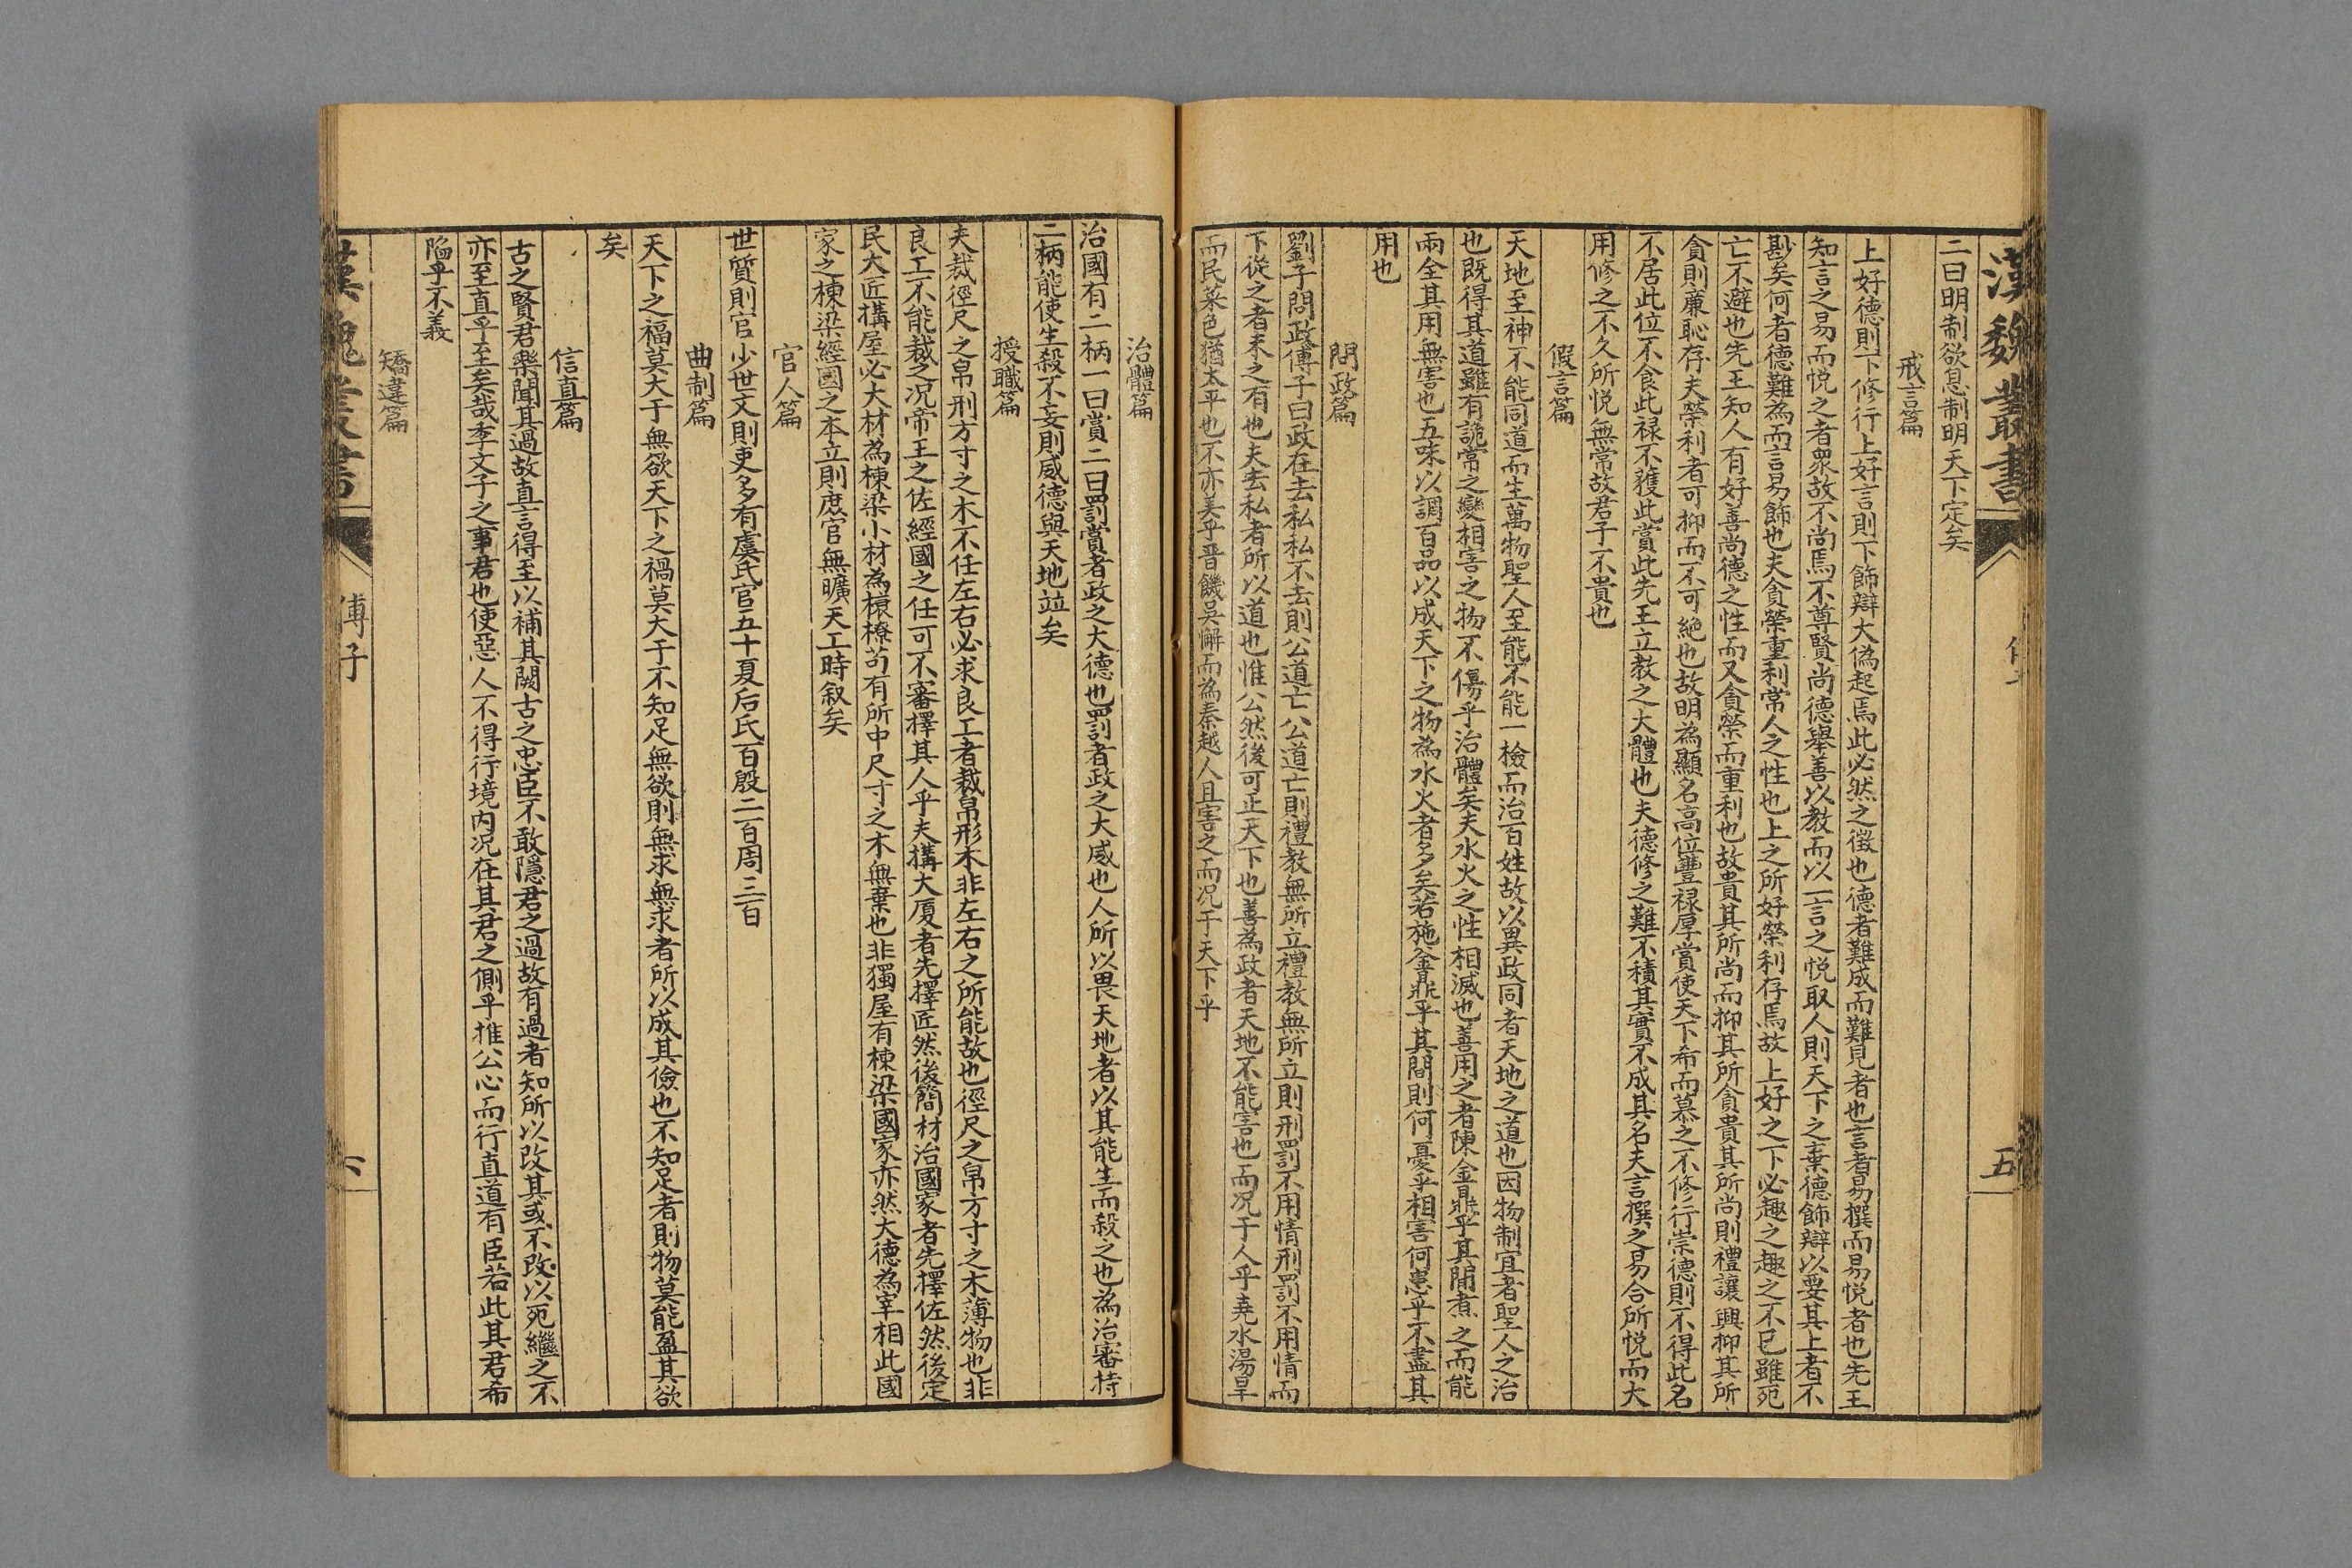 漢魏叢書
五
二曰明制欲息制明天下定矣
戒言篇
上好德則下修行上好言則下飾辯大偽起焉此必然之徵也德者難成而難見者也言者易撰而易悦者也先王
知言之易而悦之者衆故不尚焉不尊賢尚德舉善以教而以一言之悦取人則天下之棄德飾辯以要其上者不
尠矣何者德難為而言易飾也夫貪榮重利常人之性也上之所好榮利存焉故上好之下必趣之趣之不已雖死
亡不避也先王知人有好善尚德之性而又貪榮而重利也故貴其所尚而抑其所貪貴其所尚則禮讓興抑其所
貪則亷恥存夫榮利者可抑而不可絶也故明為顯名高位豐禄厚賞使天下希而慕之不修行崇德則不得此名
不居此位不食此禄不獲此賞此先王立教之大體也夫德修之難不積其實不成其名夫言撰之易合所悦而大
用修之不久所悦無常故君子不貴也
假言篇
天地至神不能同道而生萬物聖人至能不能一檢而治百姓故以異政同者天地之道也因物制宜者聖人之治
也既得其道雖有詭常之變相害之物不傷乎治體矣夫水火之性相滅也善用之者陳釡鼎乎其間煮之而能
兩全其用無害也五味以調百品以成天下之物為水火者多矣若施釡鼎乎其間則何憂乎相害何患乎不盡其
用也
問政篇
劉子問政傅子曰政在去私私不去則公道亡公道亡則禮教無所立禮教無所立則刑罰不用情刑罰不用情而
下從之者未之有也夫去私者所以道也惟公然後可正天下也善為政者天地不能害也而况于人乎堯水湯旱
而民菜色猶太平也不亦美乎晋饑吳懈而為秦越人且害之而况于天下乎
治體篇
治國有二柄一曰賞二曰罰賞者政之大德也罰者政之大威也人所以畏天地者以其能生而殺之也為治審持
二柄能使生殺不妄則威德與天地竝矣
授職篇
夫裁徑尺之帛刑方寸之木不任左右必求良工者裁帛形木非左右之所能故也徑尺之帛方寸之木薄物也非
良工不能裁之况帝王之佐經國之任可不審擇其人乎夫搆大厦者先擇匠然後簡材治國家者先擇佐然後定
民大匠搆屋必大材為棟梁小材為榱橑苟有所中尺寸之木無棄也非獨屋有棟梁國家亦然大德為宰相此國
家之棟梁經國之本立則庶官無曠天工時叙矣
官人篇
世質則官少世文則吏多有虞氏官五十夏后氏百殷二百周三百
曲制篇
天下之福莫大于無欲天下之禍莫大于不知足無欲則無求無求者所以成其儉也不知足者則物莫能盈其欲
矣
信直篇
古之賢君樂聞其過故直言得至以補其闕古之忠臣不敢隱君之過故有過者知所以改其或不改以死繼之不
亦至直乎至矣哉季文子之事君也使惡人不得行境内况在其君之側乎推公心而行直道有臣若此其君希
陷乎不義
矯違篇
漢魏叢書
傅子
六